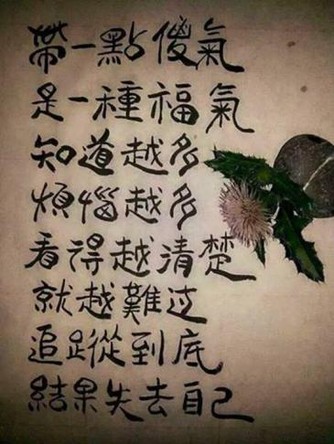 帶一點傻氣
是一種福氣
知道越多
煩惱越多
看得越清楚
就越難过
追蹤到底
結果失去自己